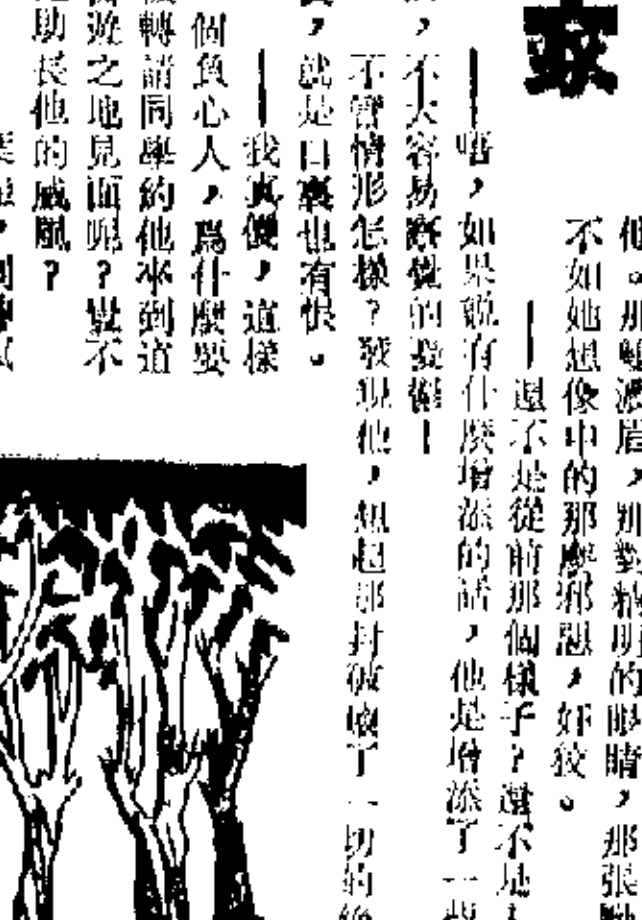 家
他。那雙濃眉，那對精明的眼睛，那張
不如她想像中的那麼邪惡，奸狡。
——還不是從前那個樣子？還不是
——唔，如果說有什麼增添的話，他是增添了一
，不大容易察覺的
不管情形怎樣？發現他，想起那封破壞了一切的
，就是口裏也有恨。
——我真傻，道樣
個負心人，爲什麼要
轉請同學約他來到道
遊之地見面呢？豈不
助長他的威風？